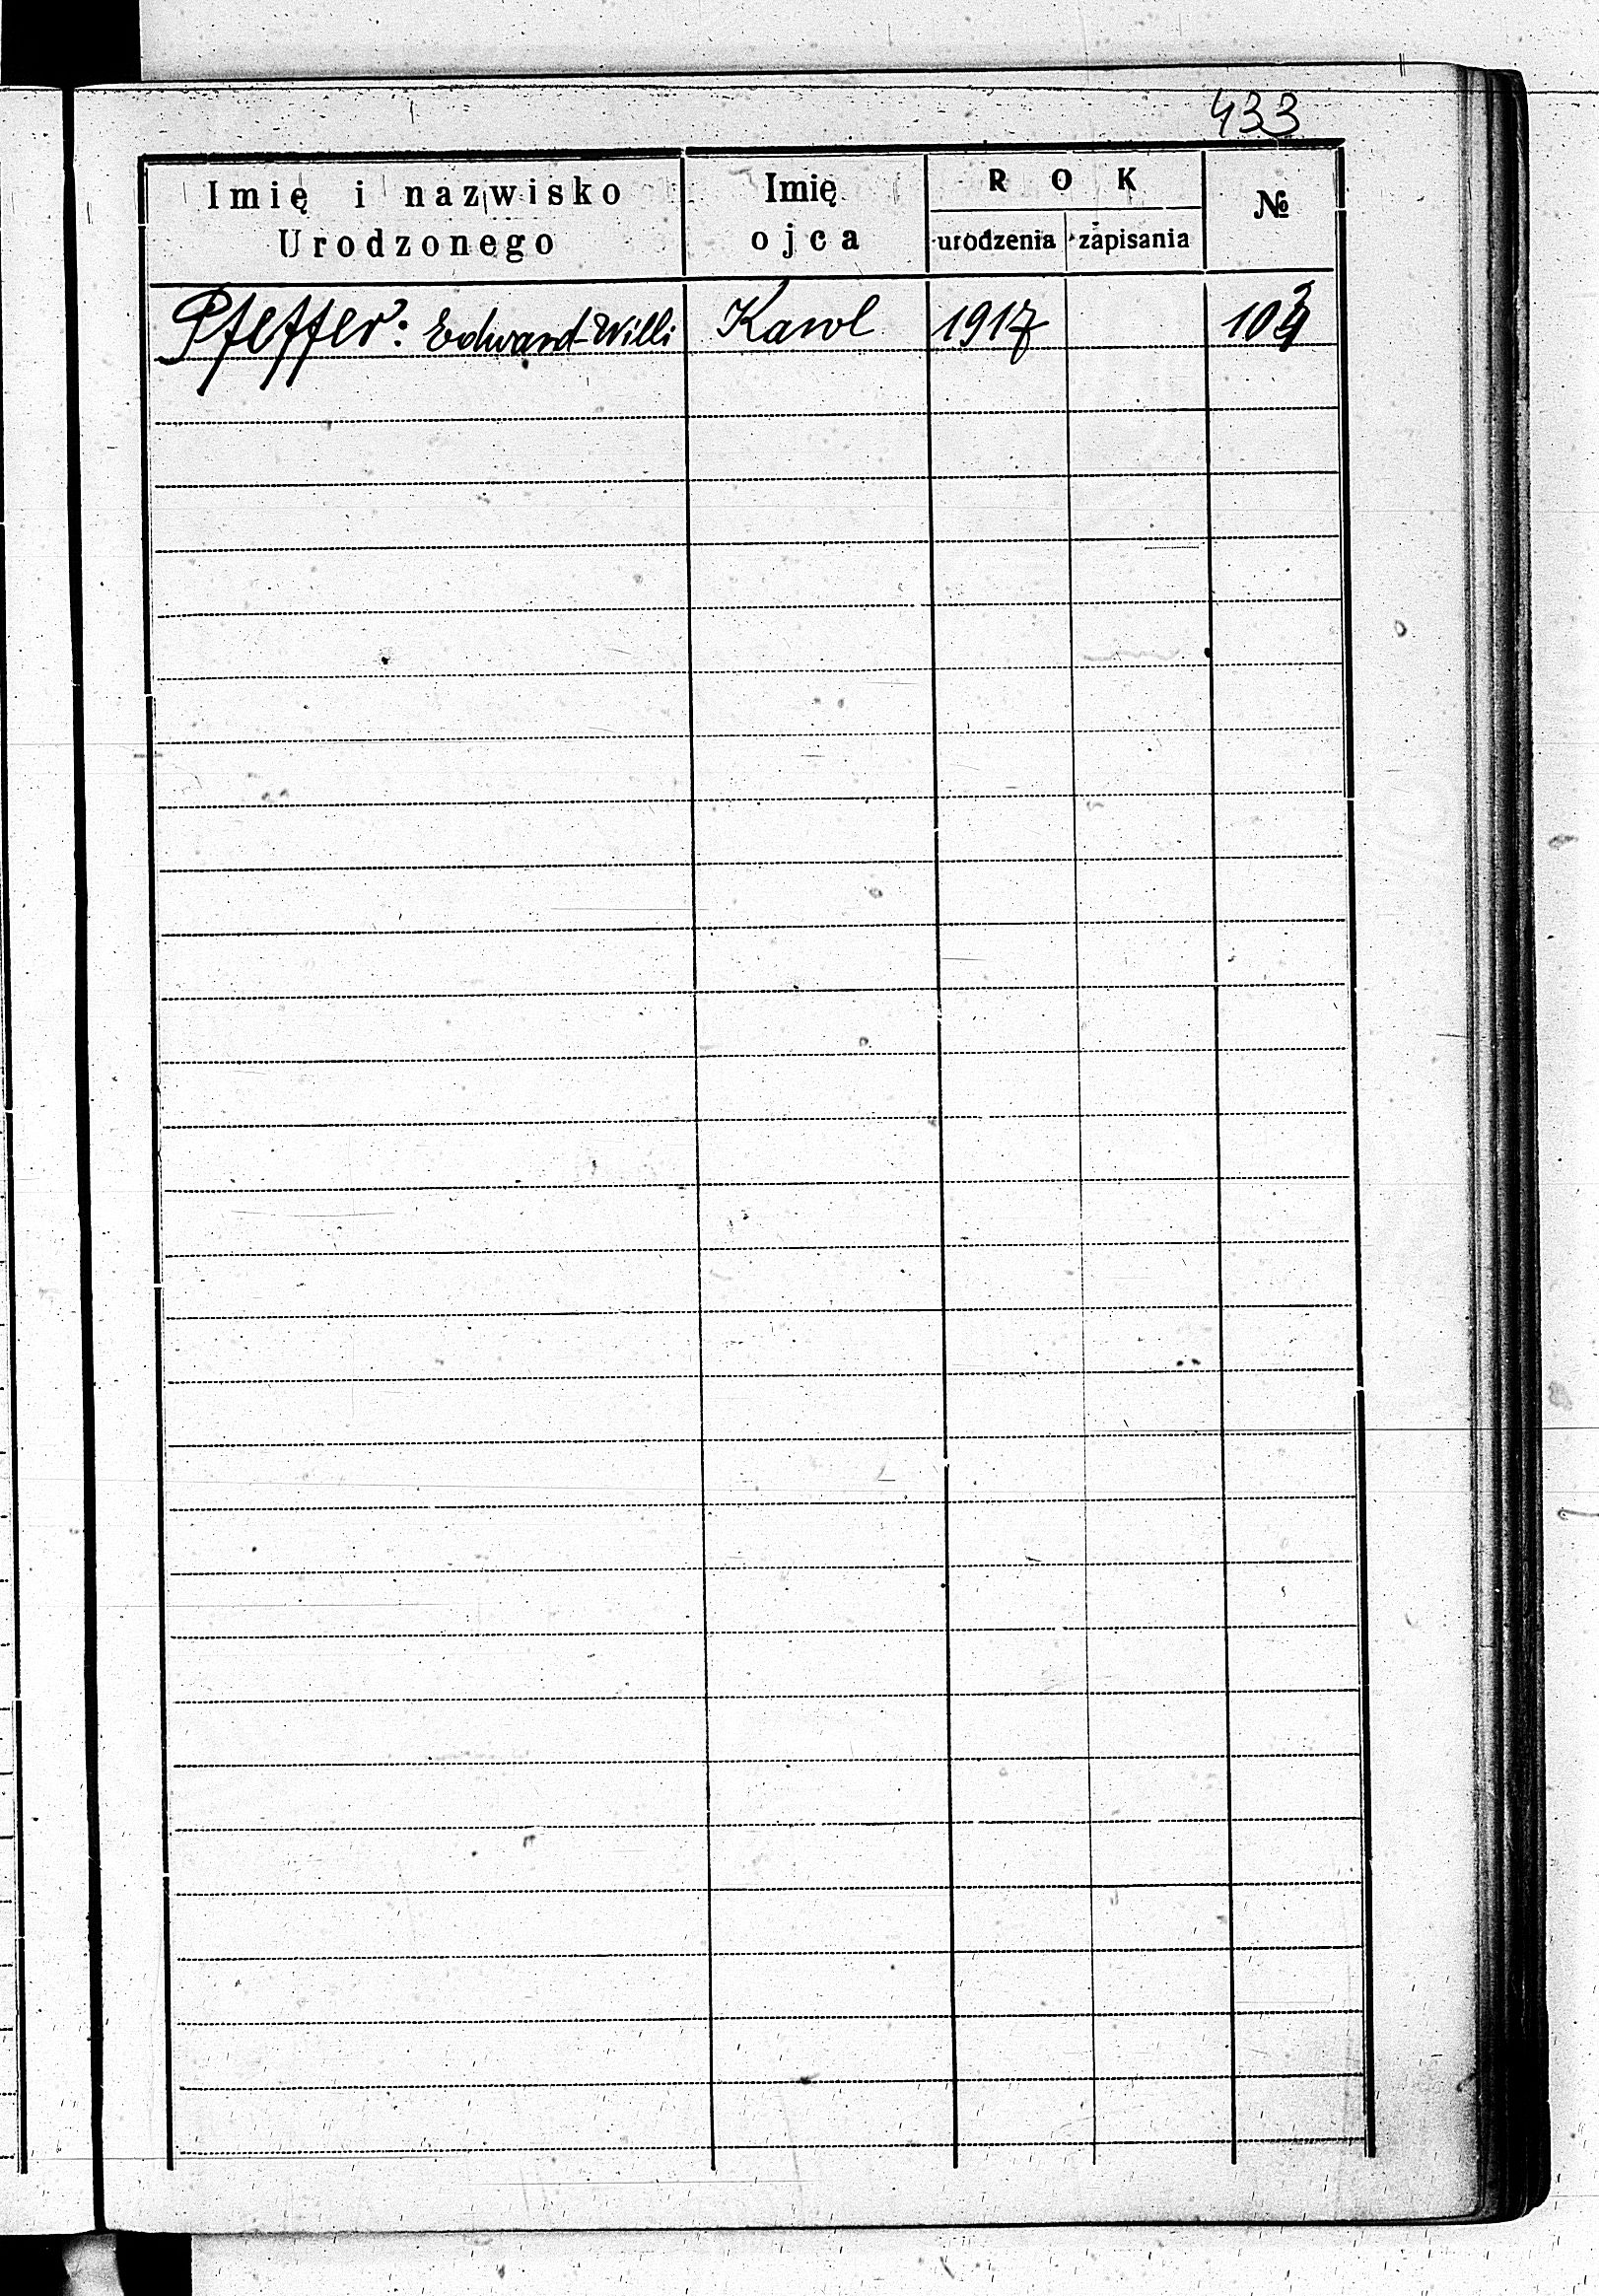 433
Imię i nazwisko Urodzonego
Imię ojca
ROK
urodzenia zapisania
№
Pfeffer: Edward-Willi Karol 1917